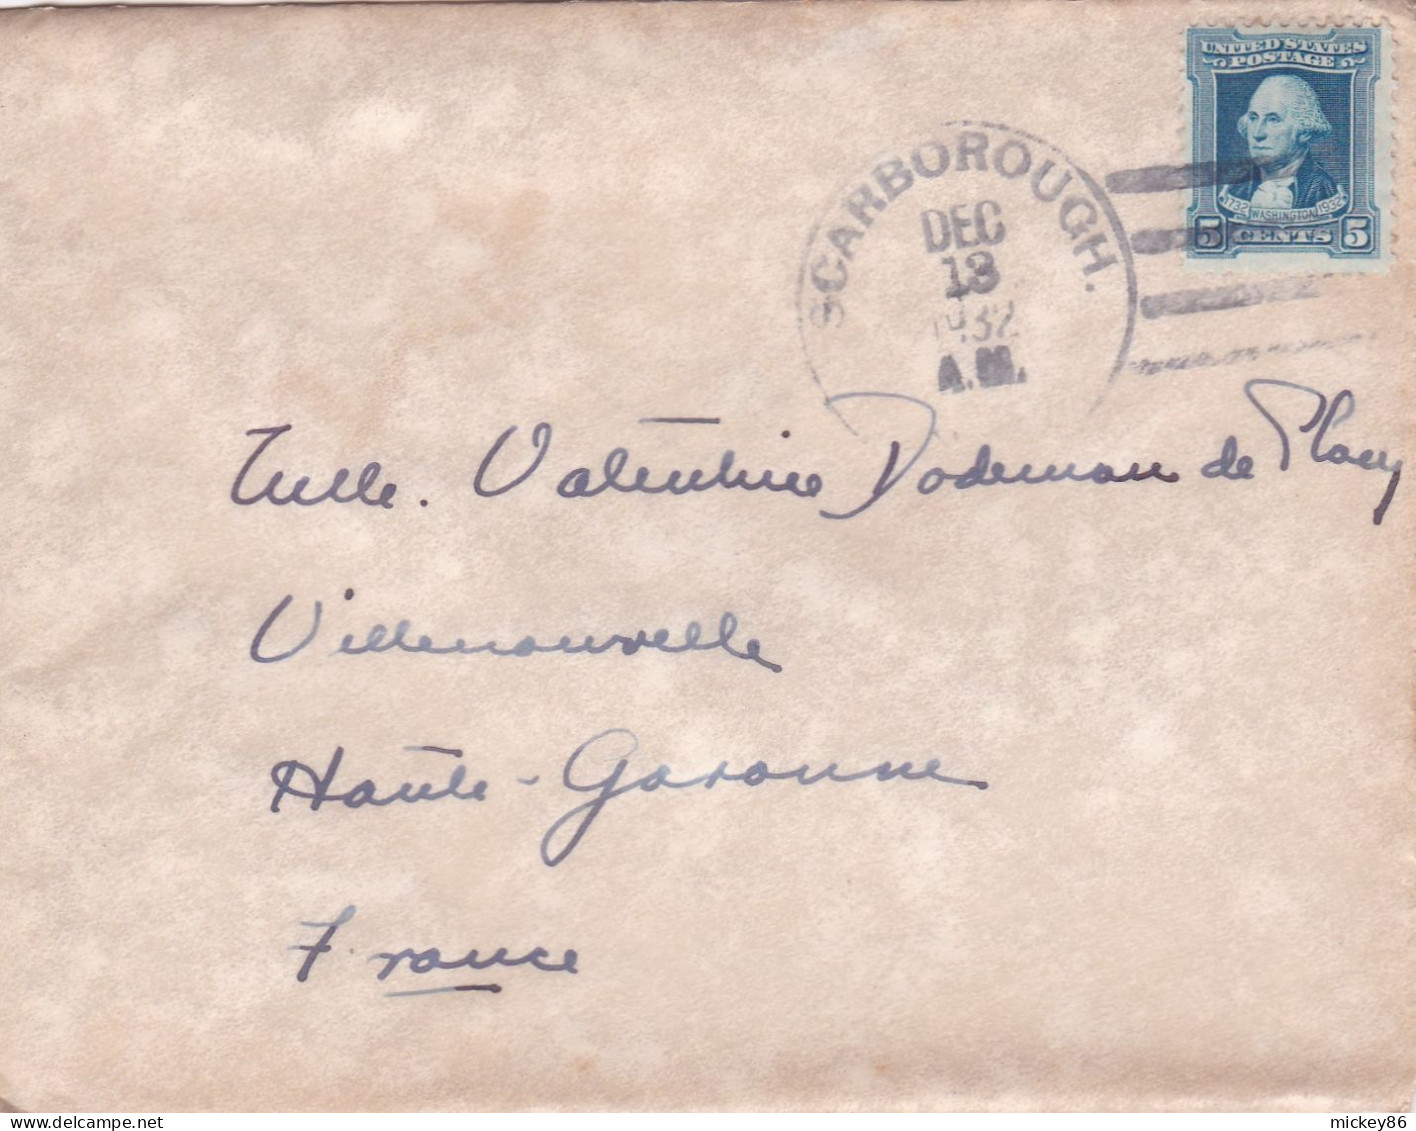 UNITED STATES
POSTAGE
1732 WASHINGTON 1932
5 CENTS 5
SCARBOROUGH.
DEC
13
1932
A.M.
Melle. Valentine Dodeman de Placy
Villenouvelle
Haute-Garonne
France
mickey86